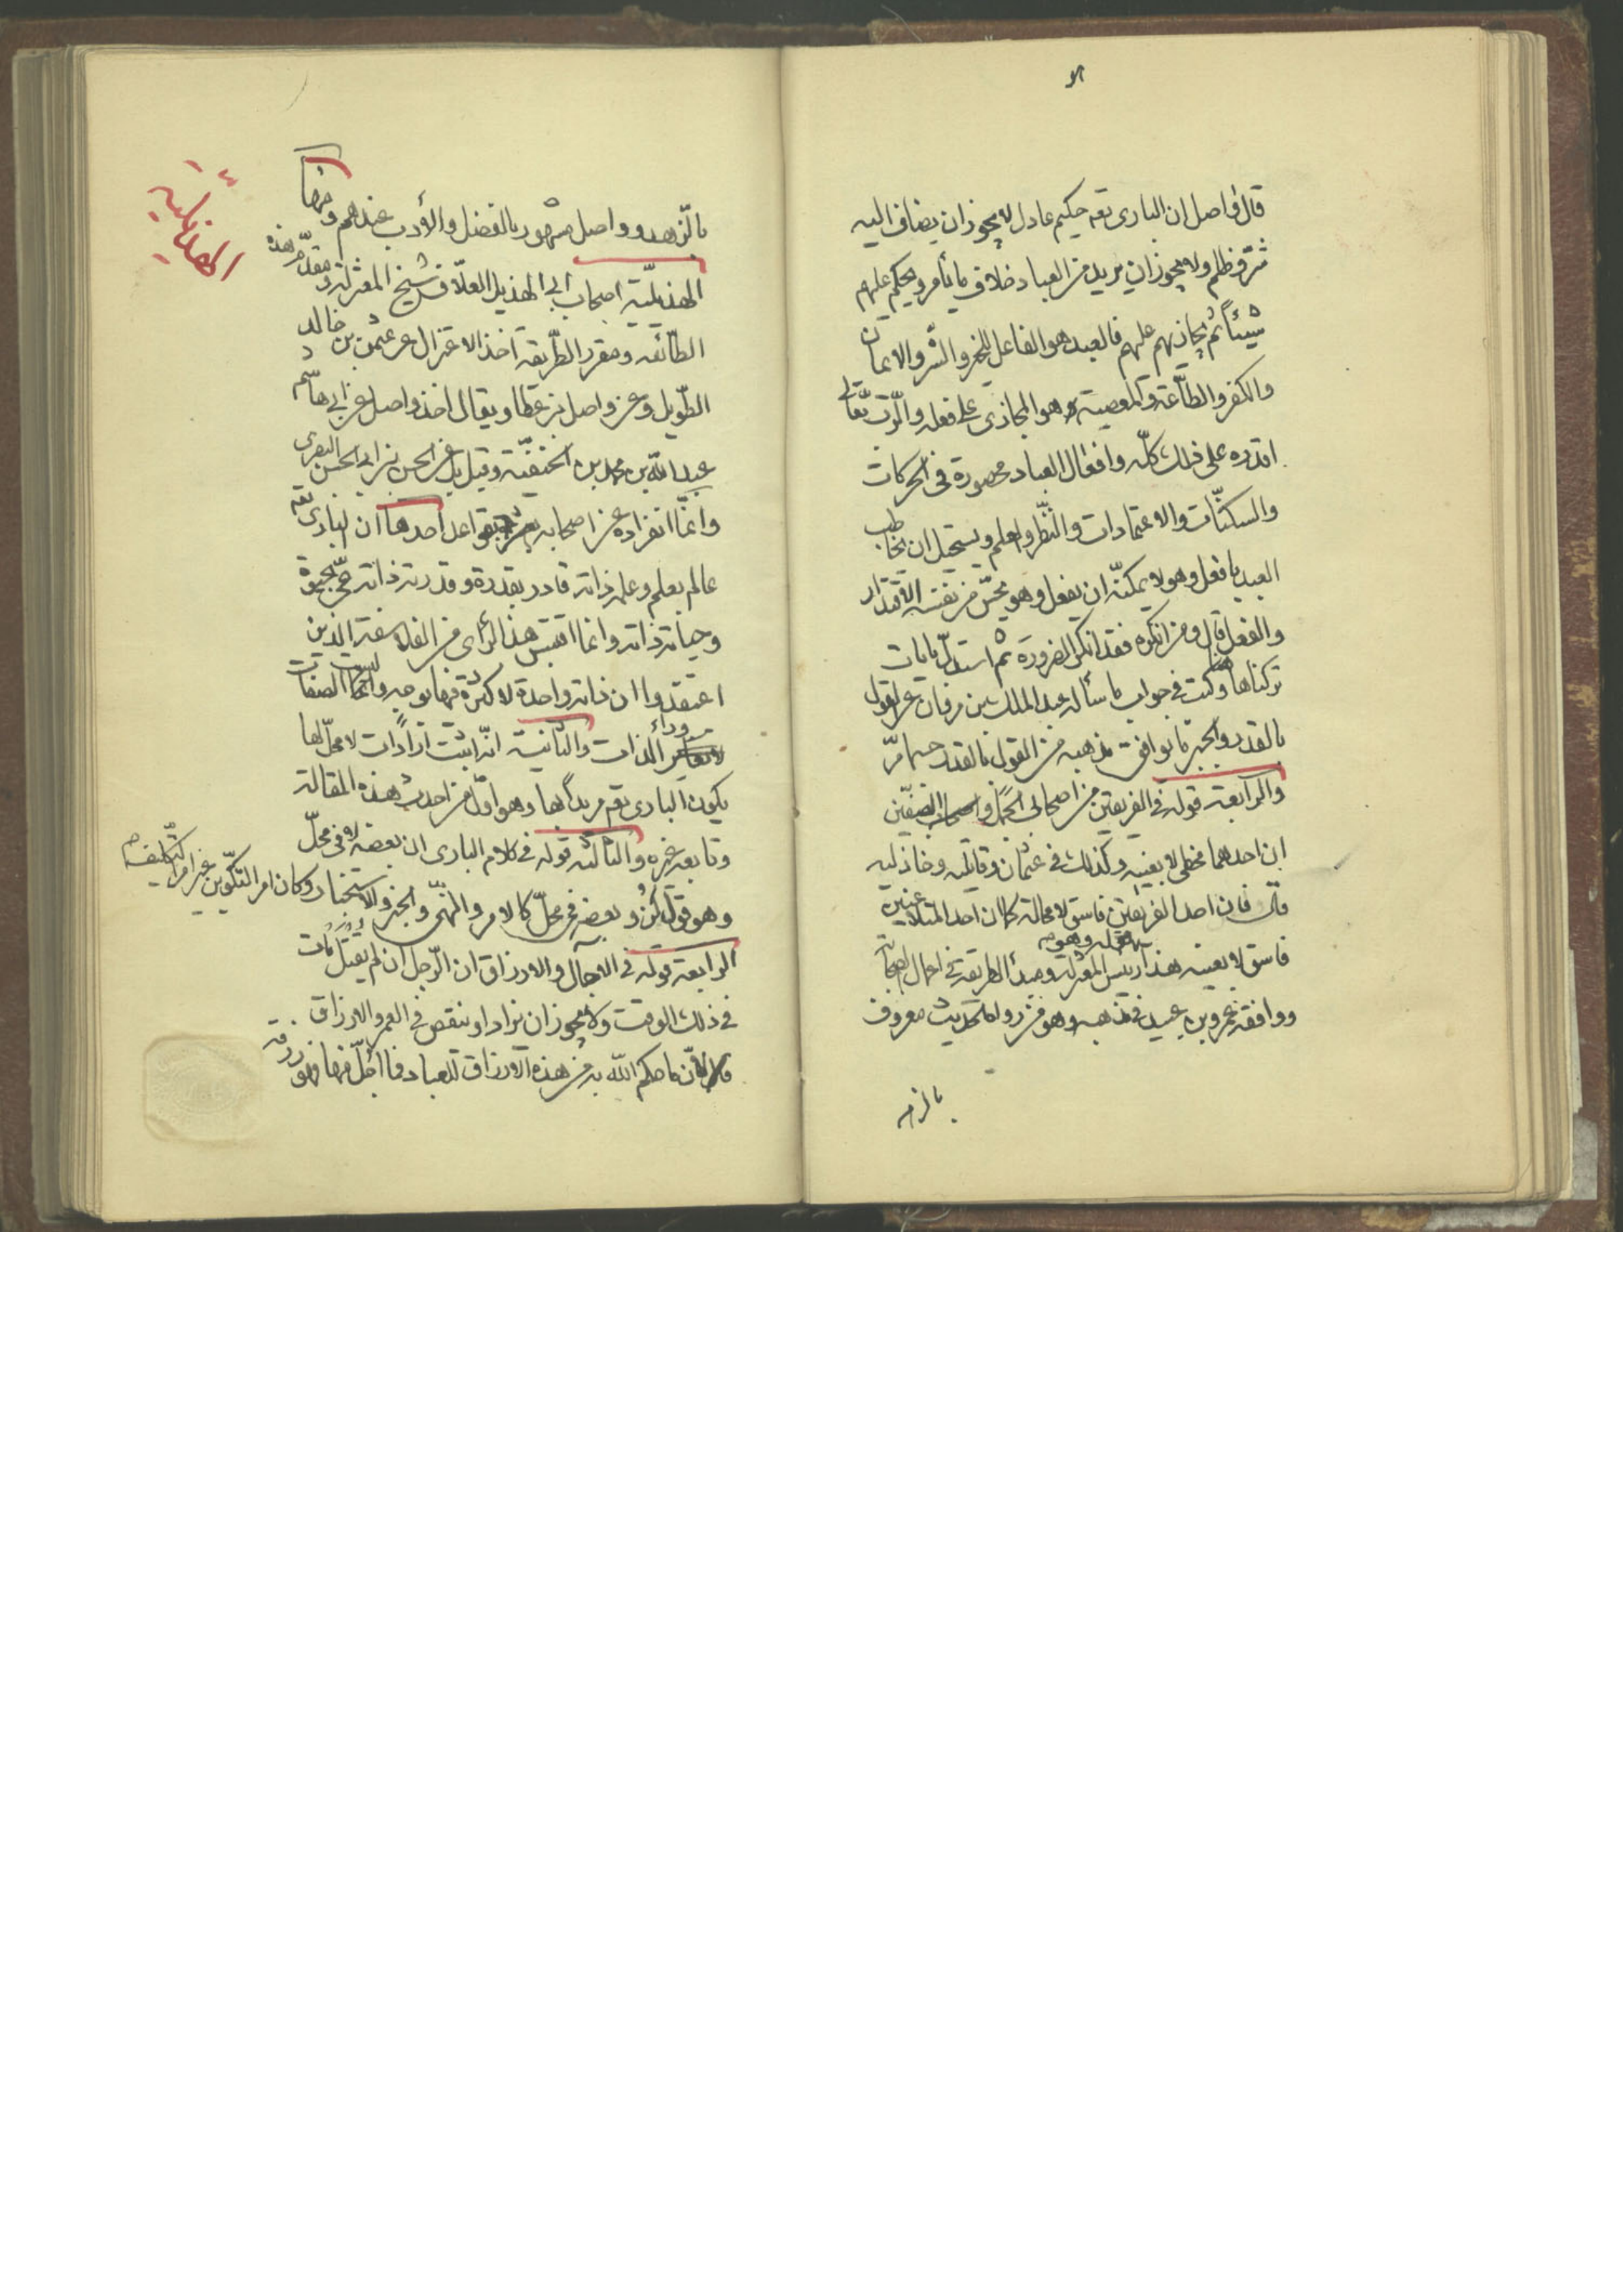 قال واصل ان الباری تعه حکیم عادل لا یجوز ان یضاف الیه
شرّ و ظلم ولا یجوز ان یرید من العباد خلاف ما یأمر ویحکم علیهم
شیئاً ثم یجازیهم علیهم فالعبد هو الفاعل للخیر والشر والایمان
والکفر والطّاعة والمعصیة وهو المجازی علی فعله والرّبّ تعالی
اقدره علی ذلک کلّه وافعال العباد محصورة فی الحرکات
والسکنات والاعتمادات والنّظر والعلم ویستحیل ان یخاطب
العبد بافعل وهو لا یمکنه ان یفعل وهو یحسّ من نفسه الاقتدار
والفعل قال ومن انکره فقد انکر الضرورة ثم استدلّ بایات
ترکناها وکتب فی جواب ما سأله عبد الملک بن مروان عن القول
بالقدر والجبر ما یوافق مذهبه من القول بالقدر حسبما مرّ
والرابعة قوله فی الفریقین من اصحاب الجمل واصحاب الصفّین
ان احدهما مخطی لا بعینه وکذلک فی عثمان وقاتلیه وخاذلیه
قال فان احد الفریقین فاسق لا محالة کما ان احد المتلاعنین
فاسق لا بعینه هذا رییس المعتزلة ومبدأ الطریقة فی اعمال الصحابة
ووافقه عمرو بن عبید فی مذهبه وهو من رواة الحدیث معروف
بالزهد
بالزهد وواصل مشهور بالفضل والأدب عندهم ومنها
الهذیلیّة اصحاب ابی الهذیل العلّاف شیخ المعتزلة ومقدّم هذه
الطّائفه ومقرر الطّریقة اخذ الاعتزال عن عثمن بن خالد
الطّویل وعن واصل بن عطا ویقال اخذ واصل عن ابی هاشم
عبد الله بن محمد بن الحنفیّة وقیل بل عن الحسن بن ابی الحسن البصری
وانمّا انفراده عن اصحابه بقواعد احدها ان الباری تعه
عالم بعلم وعلمه ذاته قادر بقدرة وقدرته ذاته حیّ بحیوة
وحیاته ذاته وانما اقتبس هذا الرأی من الفلاسفة الذین
اعتقدوا ان ذاته واحدة لا کثرة فیها بوجه وانّما الصفات لیست
وراء الذات والثانیة انّه اثبت ارادات لا محلّ لها
یکون الباری تعه مریداً بها وهو اوّل من احدث هذه المقالة
وتابعه غیره والثالثة قوله فی کلام الباری ان بعضه لا فی محلّ
وهو قول کُن وبعضه فی محلّ کالامر والنهی والخبر والاستخبار وکان امر التکوین غیر امر التکلیف
الرابعة قوله فی الاجال والارزاق ان الرّجل ان لم یقتل مات
فی ذلک الوقت ولا یجوز ان یزاد او ینقص فی العمر والارزاق
ما حکم الله به من هذه الارزاق للعباد فما احلّ منها فهو رزقه
الهذیلیة